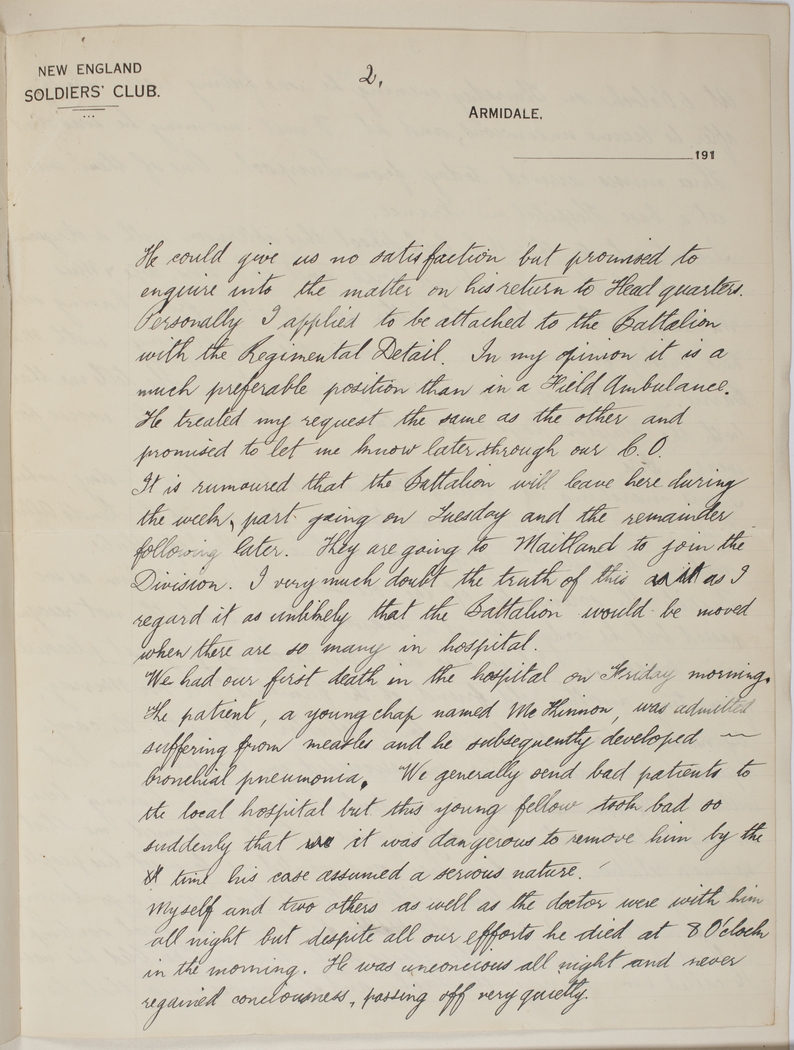 NEW ENGLAND
SOLDIERS' CLUB.
2.
ARMIDALE,
191
He could give us no satisfaction but promised to
enquire into the matter on his return to Head quarters.
Personally I applied to be attached to the Battalion
with the Regimental Detail. In my opinion it is a
much preferable position than in a Field Ambulance.
He treated my request the same as the other and
promised to let me know later through our C.O.
It is rumoured that the Battalion will leave here during
the week, part going on Tuesday and the remainder
following later. They are going to Maitland to join the
Division. I very much doubt the truth of this as it as I
regard it as unlikely that the Battalion would be moved
when there are so many in hospital.
We had our first death in the hospital on Friday morning.
The patient, a young chap named McKinnon, was admitted
suffering from measles and he subsequently developed —
bronchial pneumonia. We generally send bad patients to
the local hospital but this young fellow took bad so
suddenly that it was dangerous to remove him by the
time his case assumed a serious nature.
Myself and two others as well as the doctor were with him
all night but despite all our efforts he died at 8 O'clock
in the morning. He was unconcious all night and never
regained conciousness, passing off very quietly.